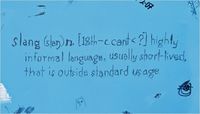 slang (slan) n [18th-c cant < ?] highly
informal language, usually short-lived,
that is outside standard usage